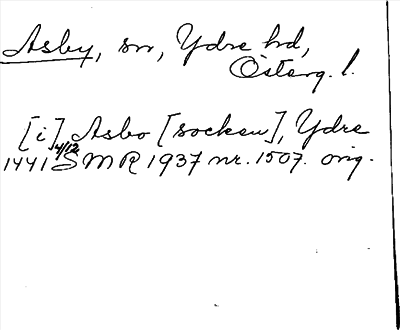 Asby, sn, Ydre hd,
Österg. l.
[i] Asbo [socken], Ydre
1441 4/12 SMR 1937 nr. 1507. orig.